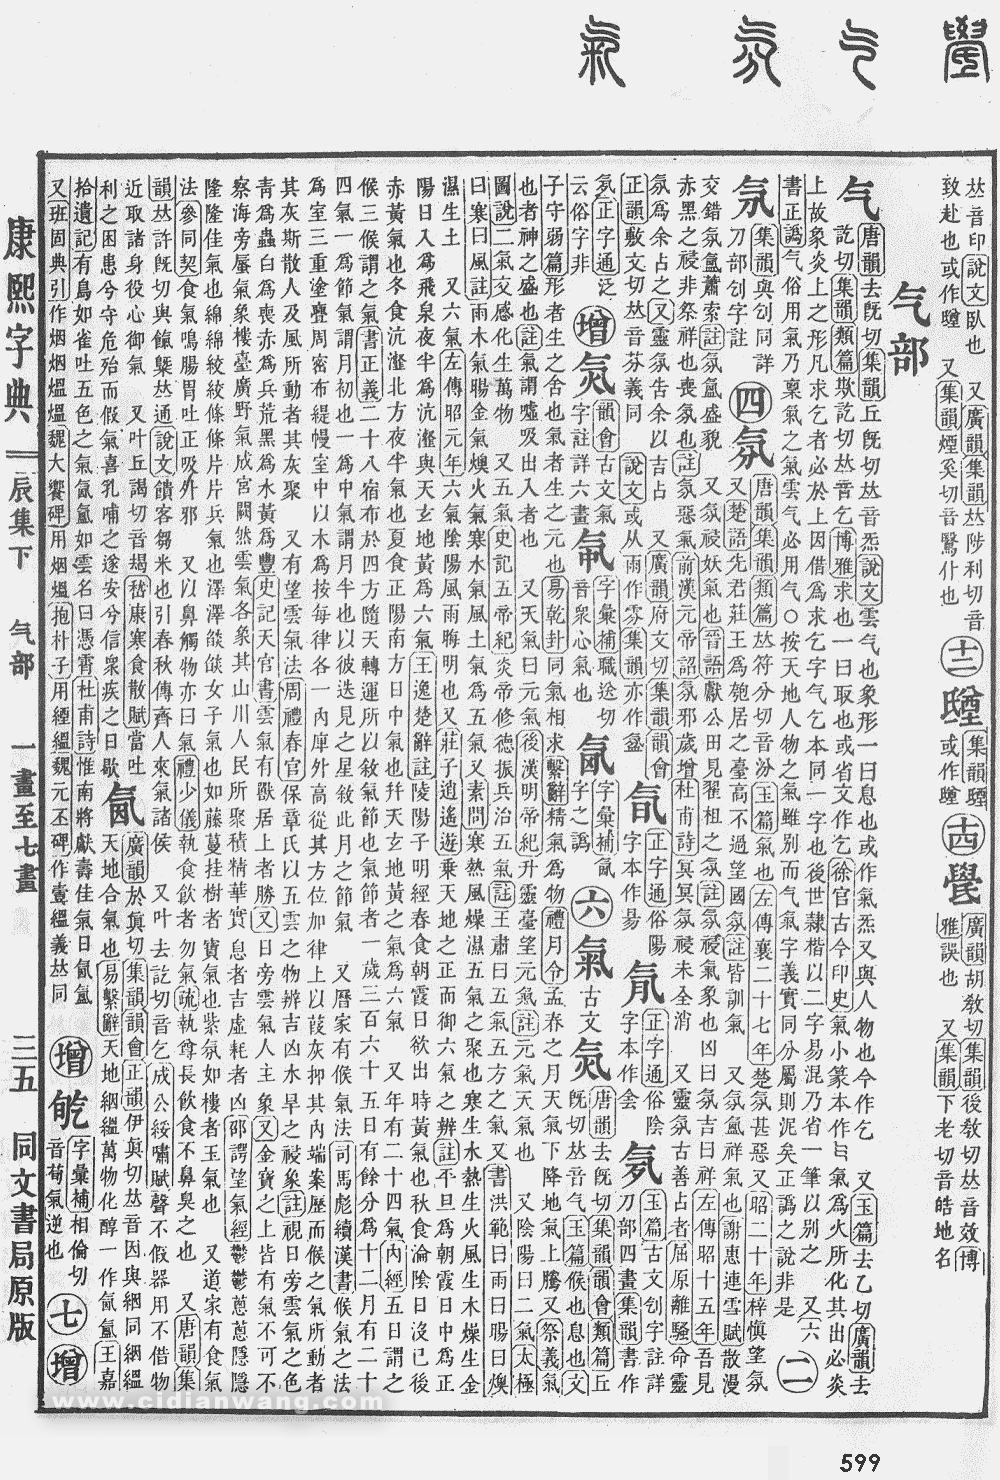 𠀤音印說文臥也 又廣韻集韻𠀤陟利切音
致赴也或作 又集韻煙奚切音鷖什也
集韻
或作
廣韻胡敎切集韻後敎切𠀤音效博
雅誤也 又集韻下老切音皓地名
气部
气
唐韻去旣切集韻丘旣切𠀤音炁說文雲气也象形一曰息也或作氣炁又與人物也今作乞 又玉篇去乙切廣韻去
訖切集韻類篇欺訖切𠀤音乞博雅求也一曰取也或省文作乞徐官古今印史氣小篆本作气氣爲火所化其出必炎
上故象炎上之形凡求乞者必於上因借爲求乞字气乞本同一字也後世隸楷以二字易混乃省一筆以別之 又六
書正譌气俗用氣乃稟氣之氣雲气必用气○按天地人物之氣雖別而气氣字義實同分屬則泥矣正譌之說非是
二
氖
集韻與刉同詳
刀部刉字註
四
氛
唐韻集韻類篇𠀤符分切音汾玉篇氣也左傳襄二十七年楚氛甚惡又昭二十年梓愼望氛
又楚語先君莊王爲匏居之臺高不過望國氛註皆訓氣 又氛氳祥氣也謝惠連雪賦散漫
交錯氛氳蕭索註氛氳盛貌 又氛祲妖氣也晉語獻公田見翟柤之氛註氛祲氣象也凶曰氛吉曰祥左傳昭十五年吾見
赤黑之祲非祭祥也喪氛也註氛惡氣前漢元帝詔氛邪歲增杜甫詩冥冥氛祲未全消 又靈氛古善占者屈原離騷命靈
氛爲余占之又靈氛告余以吉占 又廣韻府文切集韻韻會
正韻敷文切𠀤音芬義同 說文或从雨作雰集韻亦作氲
氜
正字通俗陽
字本作昜
氝
正字通俗陰
字本作侌
玉篇古文刉字註詳
刀部四畫集韻書作
氖正字通泛
云俗字非
增
炁
韻會古文氣
字註詳六畫
字彙補職迯切
音衆心氣也
字彙補氤
字之譌
六
氣
古文
炁
唐韻去旣切集韻韻會類篇丘
旣切𠀤音气玉篇候也息也文
子守弱篇形者生之舍也氣者生之元也易乾卦同氣相求繫辭精氣爲物禮月令孟春之月天氣下降地氣上騰又祭義氣
也者神之盛也註氣謂噓吸出入者也 又天氣曰元氣後漢明帝紀升靈臺望元氣註元氣天氣也 又陰陽曰二氣太極
圖說二氣交感化生萬物 又五氣史記五帝紀炎帝修德振兵治五氣註王肅曰五氣五方之氣又書洪範曰雨曰暘曰燠
曰寒曰風註雨木氣暘金氣燠火氣寒水氣風土氣爲五氣又素問寒熱風燥濕五氣之聚也寒生水熱生火風生木燥生金
濕生土 又六氣左傳昭元年六氣陰陽風雨晦明也又莊子逍遙遊乗天地之正而御六氣之辨註平旦爲朝霞日中爲正
陽日入爲飛泉夜半爲沆瀣與天玄地黃爲六氣王逸楚辭註陵陽子明經春食朝霞日欲出時黃氣也秋食淪隂日沒已後
赤黃氣也冬食沆瀣北方夜半氣也夏食正陽南方日中氣也幷天玄地黃之氣爲六氣 又年有二十四氣內經五日謂之
候三候謂之氣書正義二十八宿布於四方隨天轉運所以敘氣節也氣節者一歲三百六十五日有餘分爲十二月有二十
四氣一爲節氣謂月初也一爲中氣謂月半也以彼迭見之星敘此月之節氣 又曆家有候氣法司馬彪續漢書候氣之法
爲室三重塗釁周密布緹幔室中以木爲按每律各一內庳外高從其方位加律上以葭灰抑其內端案歷而候之氣所動者
其灰斯散人及風所動者其灰聚 又有望雲氣法周禮春官保章氏以五雲之物辨吉凶水旱之祲象註視日旁雲氣之色
靑爲蟲白爲喪赤爲兵荒黑爲水黃爲豐史記天官書雲氣有獸居上者勝又日旁雲氣人主象又金寶之上皆有氣不可不
察海旁蜃氣象樓臺廣野氣成宮闕然雲氣各象其山川人民所聚積精華實息者吉虛耗者凶邵諤望氣經鬱鬱蔥蔥隱隱
隆隆佳氣也綿綿絞絞條條片片兵氣也澤澤燄燄女子氣也如藤蔓挂樹者寶氣也紫氛如樓者玉氣也 又道家有食氣
法參同契食氣鳴腸胃吐正吸外邪 又以鼻觸物亦曰氣禮少儀執食飮者勿氣疏執尊長飮食不鼻臭之也 又唐韻集
韻𠀤許旣切與餼槩𠀤通說文饋客芻米也引春秋傳齊人來氣諸侯 又叶去訖切音乞成公綏嘯賦聲不假器用不借物
近取諸身役心御氣 又叶丘謁切音朅嵇康寒食散賦當吐
利之困患今守危殆而假氣喜孔哺之遂安兮信衆疾之日歇
氤
廣韻於眞切集韻韻會正韻伊眞切𠀤音因與絪同絪縕
天地合氣也易繫辭天地絪縕萬物化醇一作氤氳王嘉
拾遺記有鳥如雀吐五色之氣氤氳如雲名曰憑霄杜甫詩惟南將獻壽佳氣日氤氳
又班固典引作烟烟熅熅魏大饗碑用烟熅抱朴子用緸縕魏元丕碑作壹縕義𠀤同
增
䏎
字彙補相倫切
音荀氣逆也
七
增
康熙字典
辰集下 气部 一畫至七畫
三五 同文書局原版
www.cidianwang.com
599